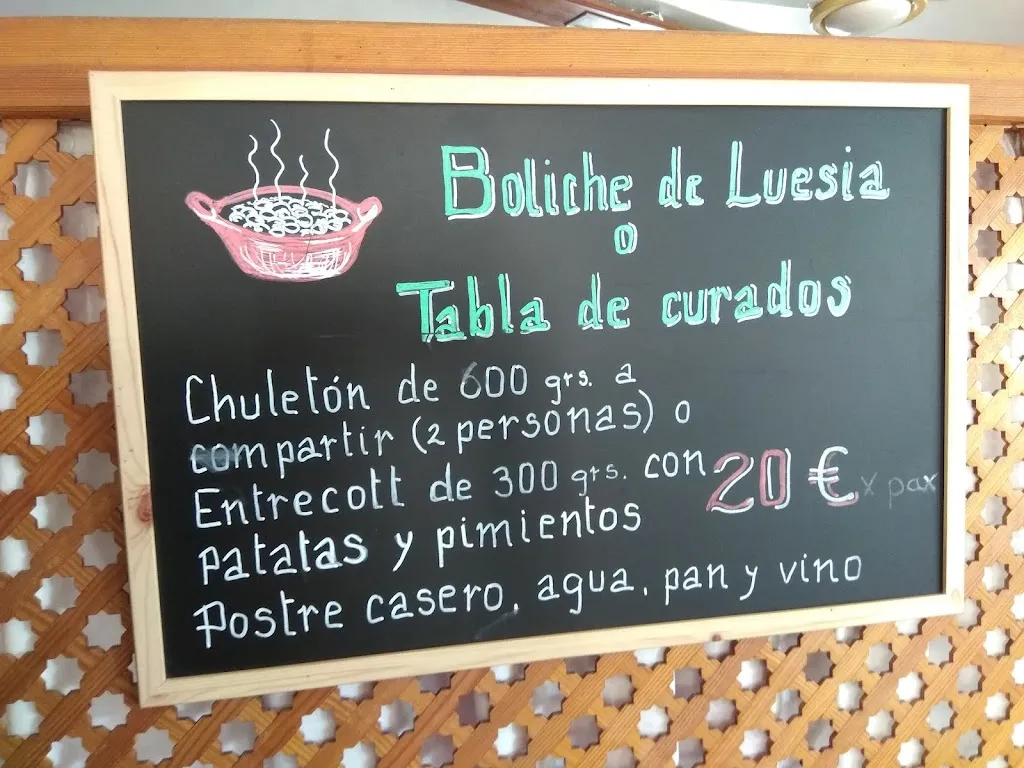 Boliche de Luesia
o
Tabla de curados
Chuletón de 600 grs. a
compartir (2 personas) o
Entrecott de 300 grs. con
patatas y pimientos
20 € x pax
Postre casero, agua, pan y vino